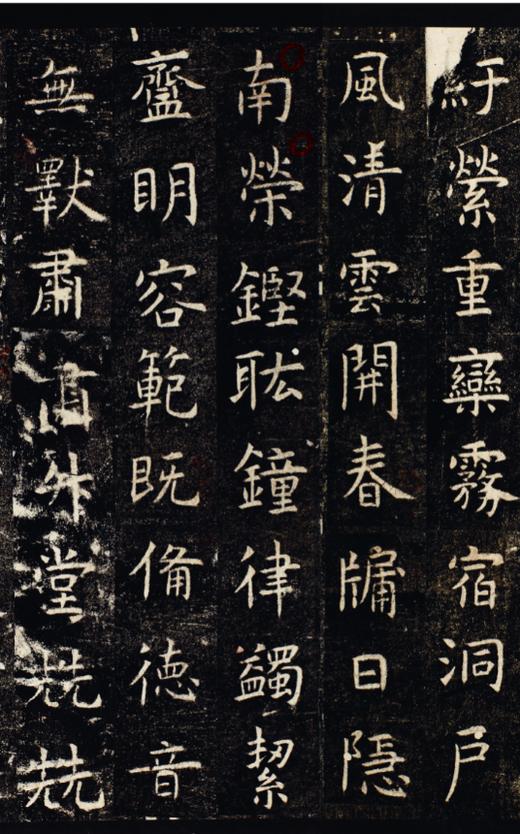 紆縈重欒霧宿洞戶
風清雲開春牖日隱
南榮鏗耾鐘律蠲絜
齍眀容範既備德音
無斁肅堂兟兟